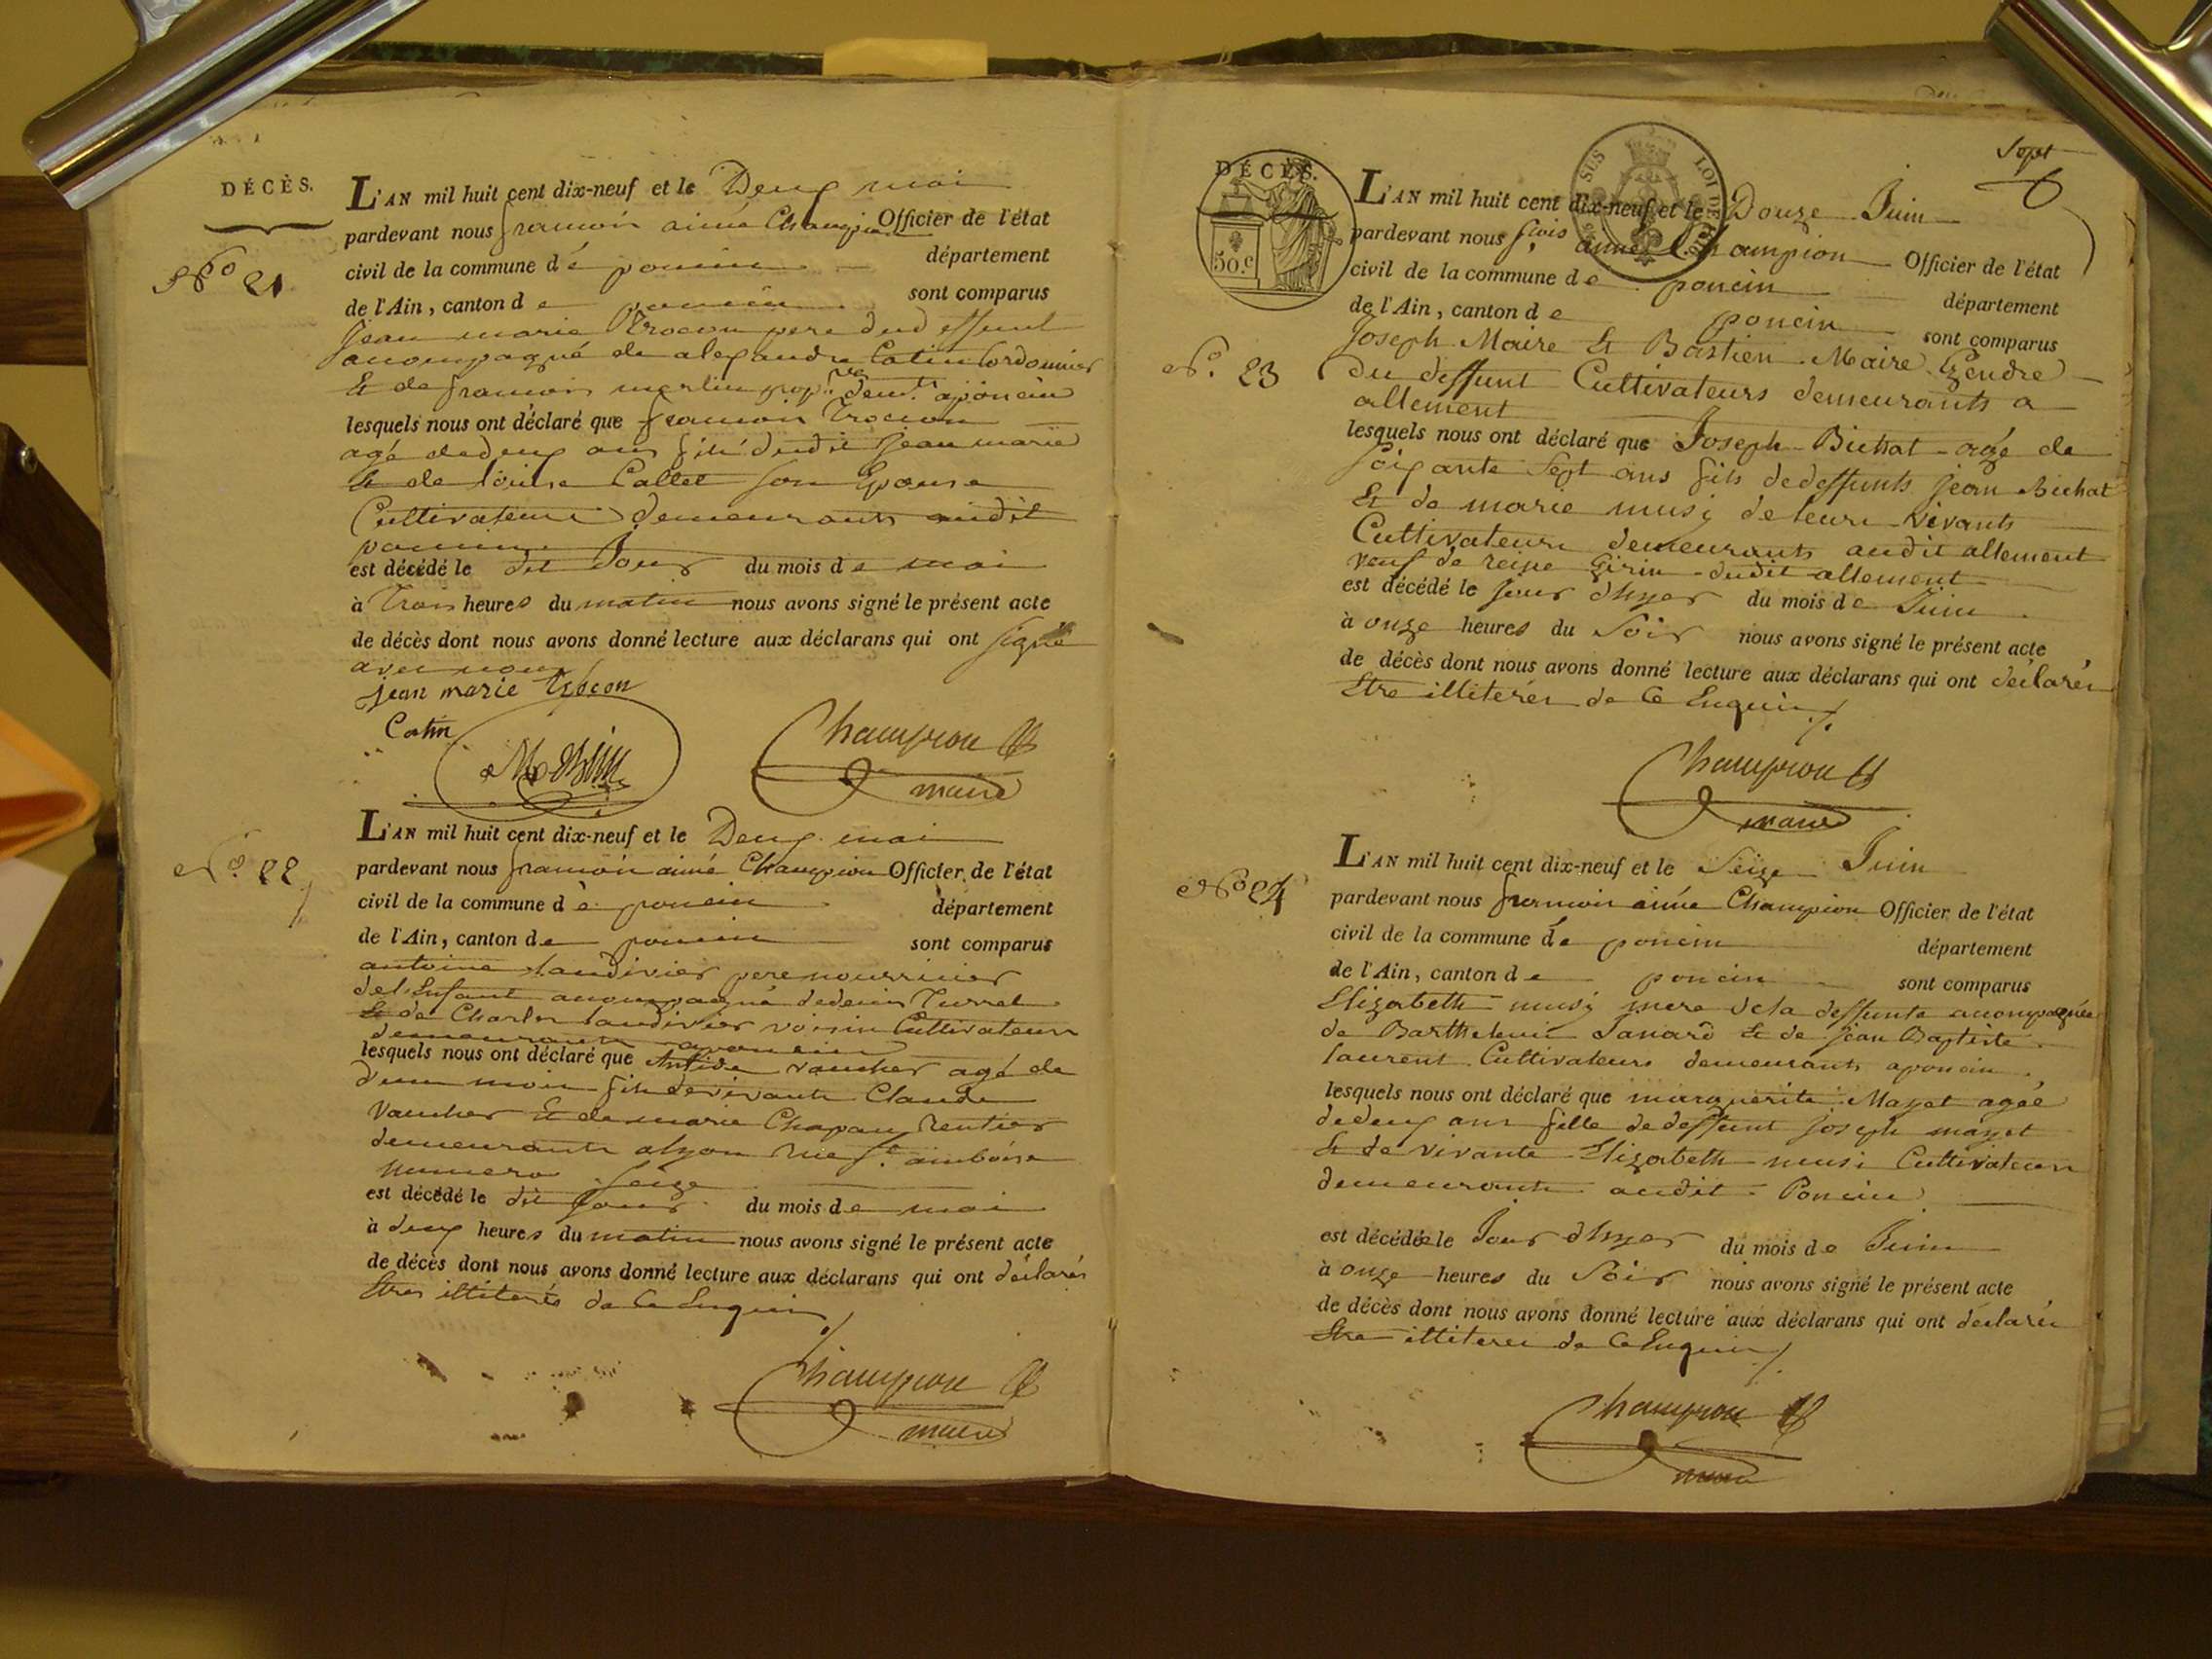 DÉCÈS.
N.º 21
L'AN mil huit cent dix-neuf et le Deux mai
pardevant nous françois aimé Champion Officier de l'état
civil de la commune dé poncin département
de l'Ain, canton de poncin sont comparus
Jean marie Trocon pere dud deffunt
accompagné de alexandre Catin Cordonnier
Et de françois merlin prop.re demt. aponcin
lesquels nous ont déclaré que francois Trocon
agé dedeux ans fils dudit jean marie
Et de louise Callet son Epouse
Cultivateurs demeurants audit
poncin
est décédé le dit Jour du mois de mai
à Trois heures du matin nous avons signé le présent acte
de décès dont nous avons donné lecture aux déclarans qui ont signé
avec nous
jean marie trocon
Catin
Champion
maire
N.º 22
L'AN mil huit cent dix-neuf et le Deux mai
pardevant nous françois aimé Champion Officier de l'état
civil de la commune dé poncin département
de l'Ain, canton de poncin sont comparus
antoine landivier pere nourricier
del'Enfant accompagné dedenis Turrel
Et de Charles landivier voisin Cultivateurs
demeurants aponcin
lesquels nous ont déclaré que Antide vaucher agé de
d'un mois fils devivants Claude
Vaucher Et de marie Chapau Rentier
demeurants alyon Rue St. amboise
numero seize
est décédé le dit Jour du mois de mai
à deux heures du matin nous avons signé le présent acte
de décès dont nous avons donné lecture aux déclarans qui ont déclarés
Etres illiterés de Ce Enquis
Champion
maire
Sept
DÉCÈS.
50.c
SES LOI DE
N.º 23
L'AN mil huit cent dix-neuf et le Douze Juin
pardevant nous fçois aimé Champion Officier de l'état
civil de la commune de poncin département
de l'Ain, canton de poncin sont comparus
Joseph Maire Et Bastien Maire Gendre
du deffunt Cultivateurs demeurants a
allement
lesquels nous ont déclaré que Joseph Bichat agé de
soixante Sept ans fils dedeffunts jean Bichat
Et de marie musy de leurs vivants
Cultivateurs demeurants audit allement
veuf de reine Girin dudit allement
est décédé le jour d'hyer du mois de Juin
à onze heures du Soir nous avons signé le présent acte
de décès dont nous avons donné lecture aux déclarans qui ont déclarés
Etre illiterés de Ce Enquis
Champion
maire
N.º 24
L'AN mil huit cent dix-neuf et le Seize Juin
pardevant nous francois aimé Champion Officier de l'état
civil de la commune de poncin département
de l'Ain, canton de poncin sont comparus
Elizabeth musy mere dela deffunte accompagnée
de Barthelemi Janard Et de jean Baptiste
laurent Cultivateurs demeurants aponcin
lesquels nous ont déclaré que marguerite Mayet agée
dedeux ans fille dedeffunt joseph mayet
Et de vivante Elizabeth musi Cultivateurs
demeurants audit Poncin
est décédée le Jour d'hyer du mois de Juin
à onze heures du Soir nous avons signé le présent acte
de décès dont nous avons donné lecture aux déclarans qui ont déclarés
Etre illiteres de Ce Enquis
Champion
maire